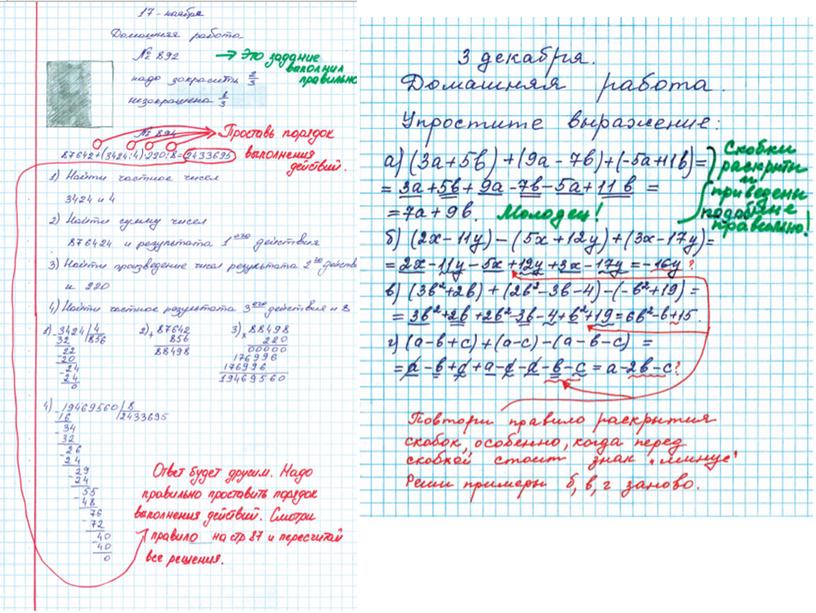 17 - ноября
Домашняя работа
№ 892
→ Это задание
выполнил
правильно
надо закрасить 2/3
незакрашена 1/3
№ 894
Проставь порядок
выполнения
действий.
87642+(3424:4)·220:8=2433695
1) Найти частное чисел
3424 и 4
2) Найти сумму чисел
876424 и результата 1ого действия
3) Найти произведение чисел результата 2го действия
и 220
4) Найти частное результата 3его действия и 8
1) 3424 | 4
32 856
22
20
24
24
0
2) + 87642
856
88498
3) × 88498
220
00000
176996
176996
19469560
4) 19469560 | 8
16 2433695
34
32
26
24
29
24
55
48
76
72
40
40
0
Ответ будет другим. Надо
правильно проставить порядок
выполнения действий. Смотри
правило на стр 87 и пересчитай
все решения.
3 декабря.
Домашняя работа.
Упростите выражение:
а) (3a+5b) + (9a - 7b)+(-5a+11b)=
= 3a+5b+9a-7b-5a+11b =
= 7a+9b. Молодец!
Скобки
раскрыты
и
приведены
подобные
правильно!
б) (2x-11y)-(5x+12y)+(3x-17y)=
= 2x-11y-5x+12y+3x-17y=-16y ?
в) (3b²+2b) + (2b²-3b-4)-(-b²+19) =
= 3b²+2b+2b²-3b-4+b²+19=6b²-b+15.
г) (a-b+c)+(a-c)-(a-b-c) =
= a-b+c+a-c-a-b-c = a-2b-c ?
Повтори правило раскрытия
скобок, особенно, когда перед
скобкой стоит знак „минус"
Реши примеры б, в, г заново.